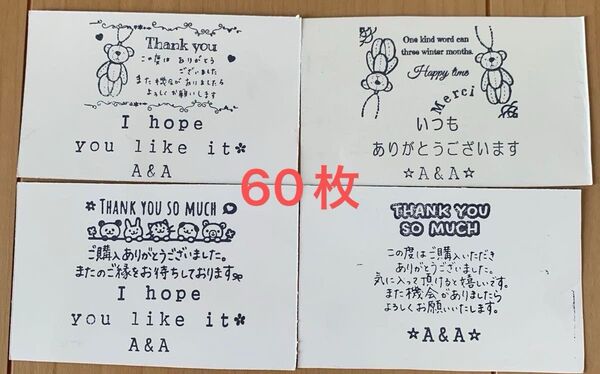 Thank you
この度は ありがとう
ございました
また機会がありましたら
よろしくお願いします
I hope
you like it
A & A
One kind word can
three winter months.
Happy time
Merci
いつも
ありがとうございます
☆A&A☆
60枚
★THANK YOU SO MUCH
ご購入ありがとうございました。
またのご縁をお待ちしております。
I hope
you like it
A & A
THANK YOU
SO MUCH
この度はご購入いただき
ありがとうございました。
気に入って頂けると嬉しいです。
また機会がありましたら
よろしくお願いいたします。
☆A&A☆